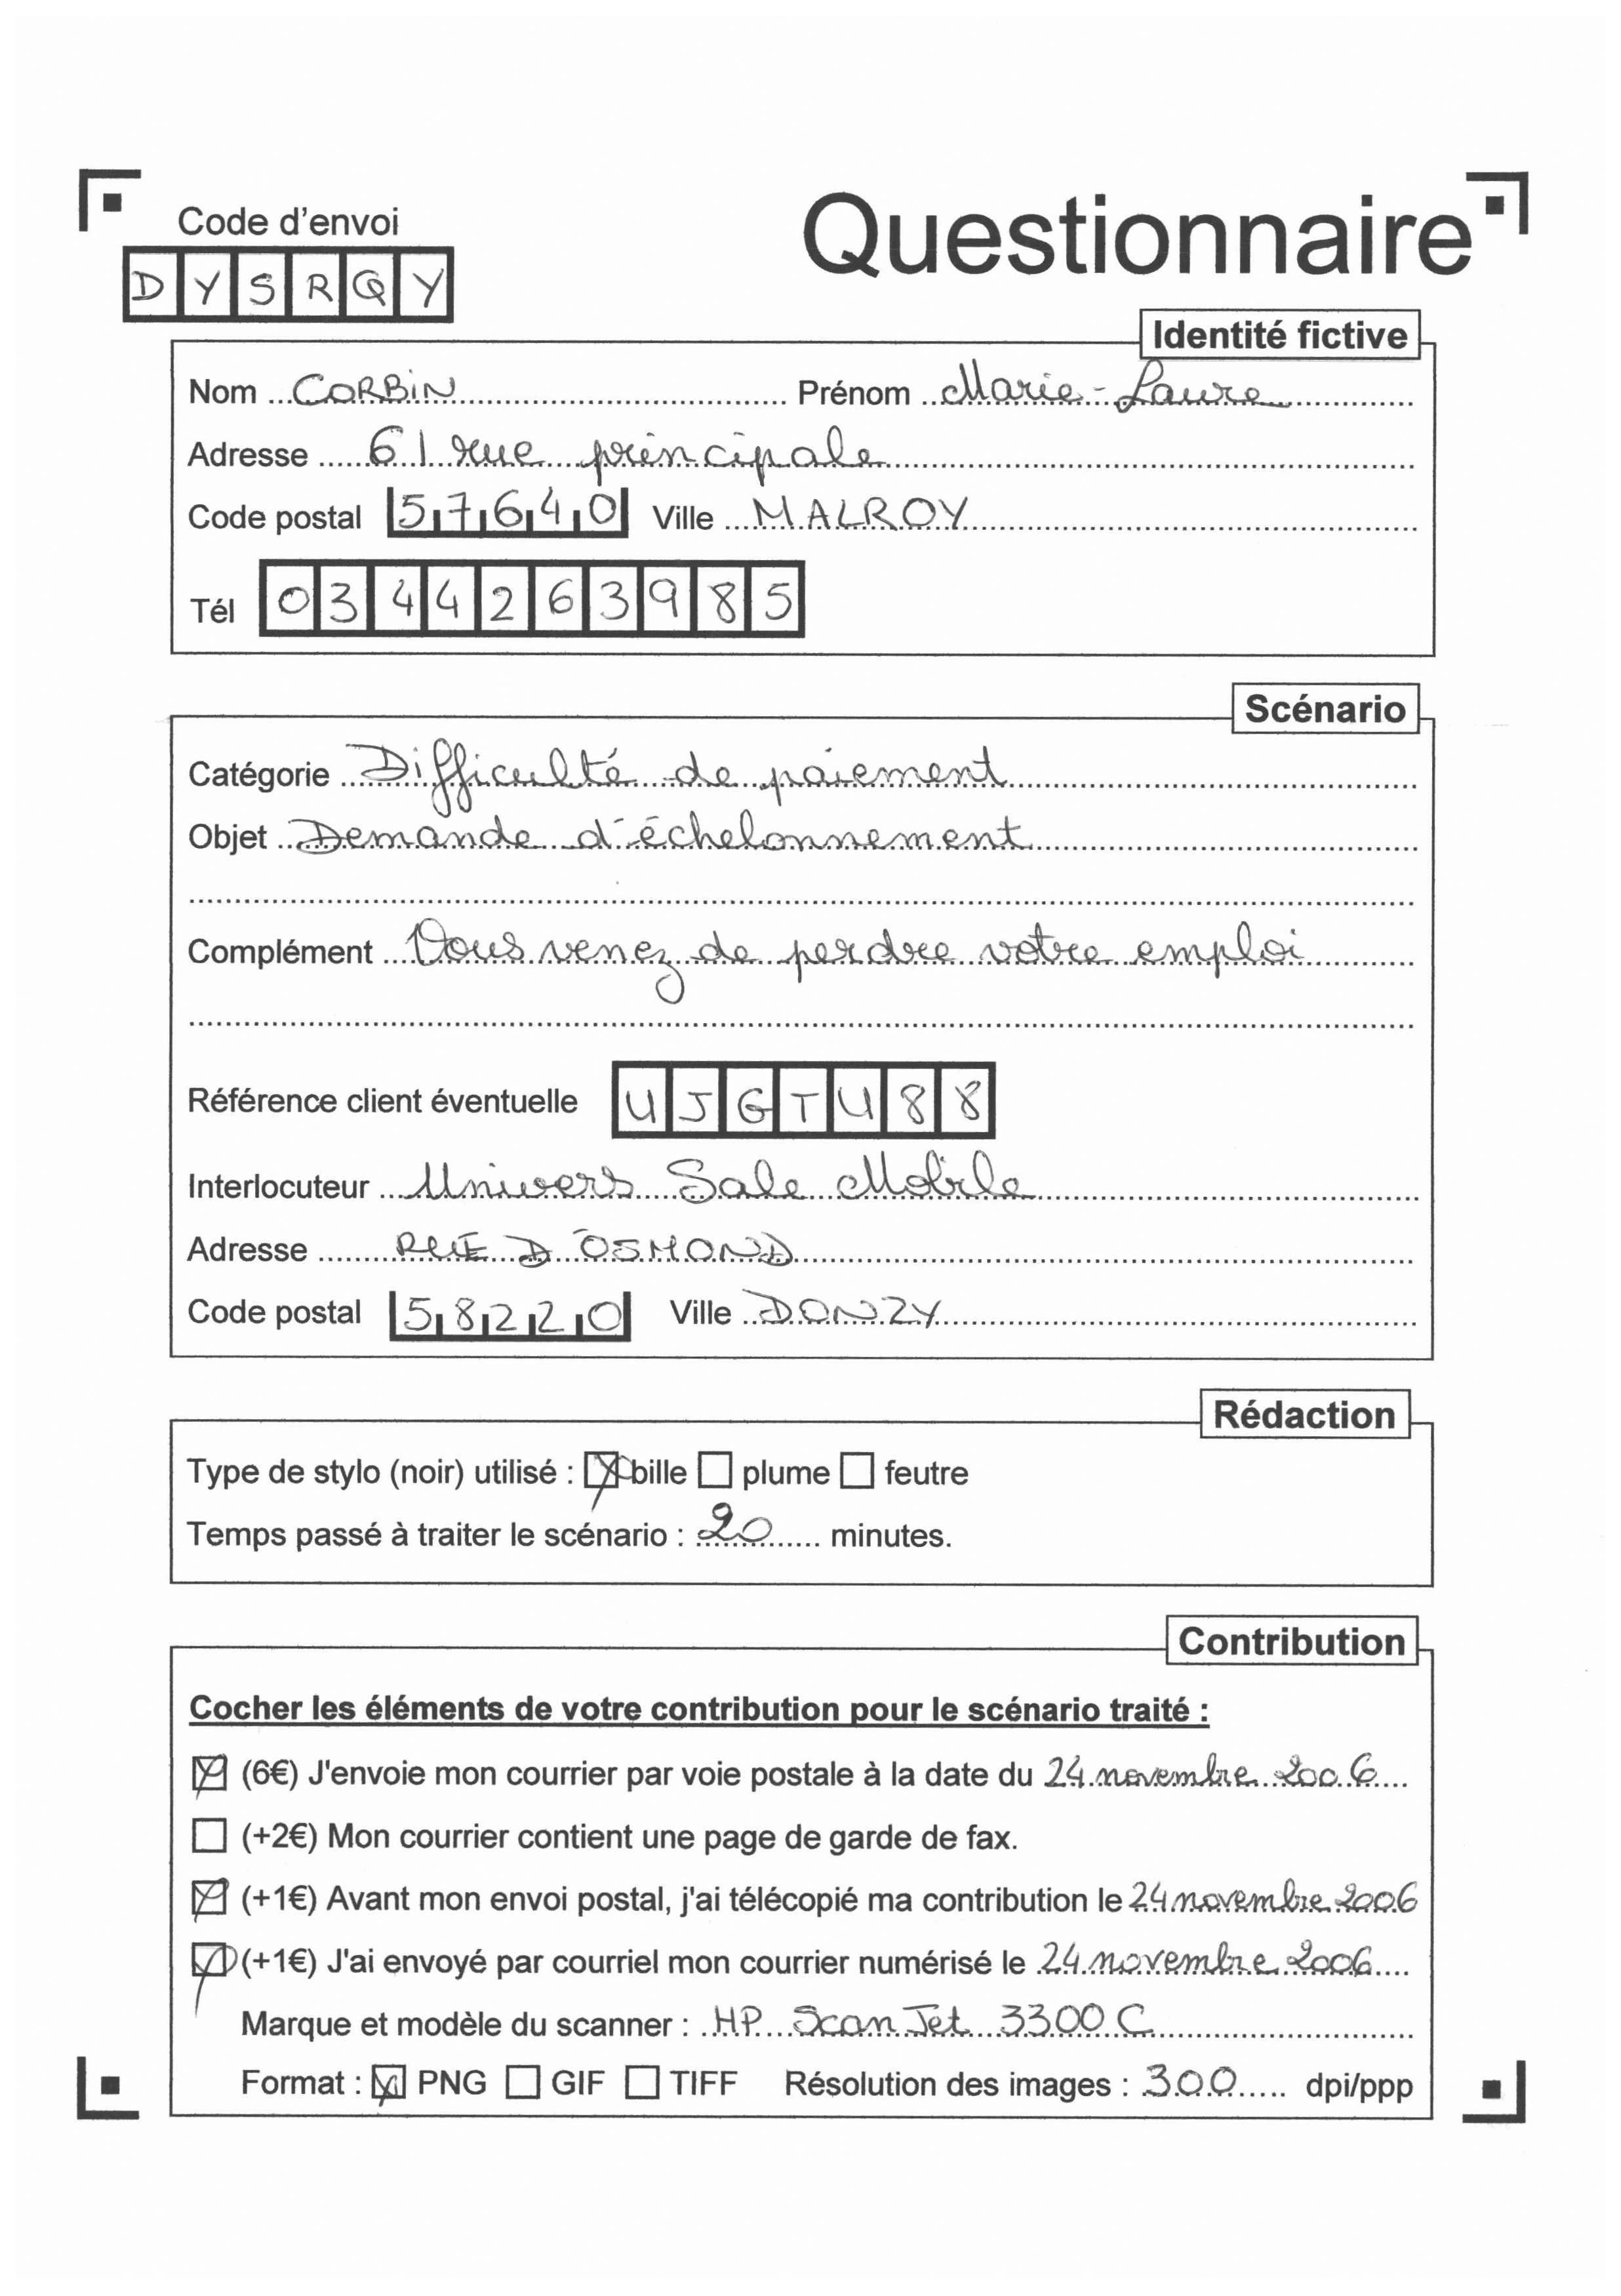 Code d'envoi
Questionnaire
DYSRQY
Identité fictive
Nom CORBiN Prénom Marie-Laure
Adresse 61 rue principale
Code postal 57640 Ville MALROY
Tél 0344263985
Scénario
Catégorie Difficulté de paiement
Objet Demande d'échelonnement
Complément Vous venez de perdre votre emploi
Référence client éventuelle UJGTU88
Interlocuteur Univers Sale Mobile
Adresse RUE D'OSMOND
Code postal 58220 Ville DONZY
Rédaction
Type de stylo (noir) utilisé : bille plume feutre
Temps passé à traiter le scénario : 20 minutes.
Contribution
Cocher les éléments de votre contribution pour le scénario traité :
(6€) J'envoie mon courrier par voie postale à la date du 24 novembre 2006
(+2€) Mon courrier contient une page de garde de fax.
(+1€) Avant mon envoi postal, j'ai télécopié ma contribution le 24 novembre 2006
(+1€) J'ai envoyé par courriel mon courrier numérisé le 24 novembre 2006
Marque et modèle du scanner : HP ScanJet 3300 C
Format : PNG GIF TIFF Résolution des images : 300 dpi/ppp